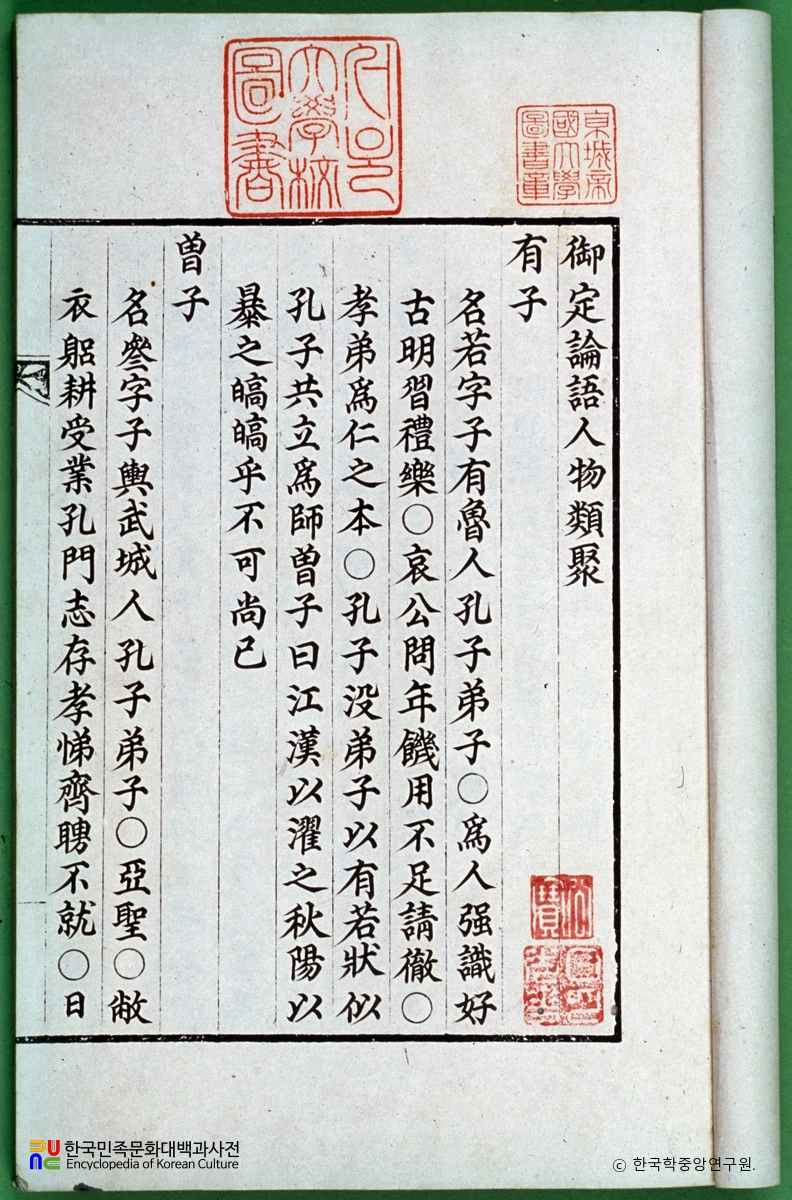 御定論語人物類聚
有子
名若字子有魯人孔子弟子○爲人强識好
古明習禮樂○哀公問年饑用不足請徹○
孝弟爲仁之本○孔子没弟子以有若狀似
孔子共立爲師曾子曰江漢以濯之秋陽以
暴之皜皜乎不可尚已
曾子
名參字子輿武城人孔子弟子○亞聖○敝
衣躬耕受業孔門志存孝悌齊聘不就○日
京城帝
國大學
圖書章
大學校
圖書
한국민족문화대백과사전
Encyclopedia of Korean Culture
ⓒ 한국학중앙연구원.